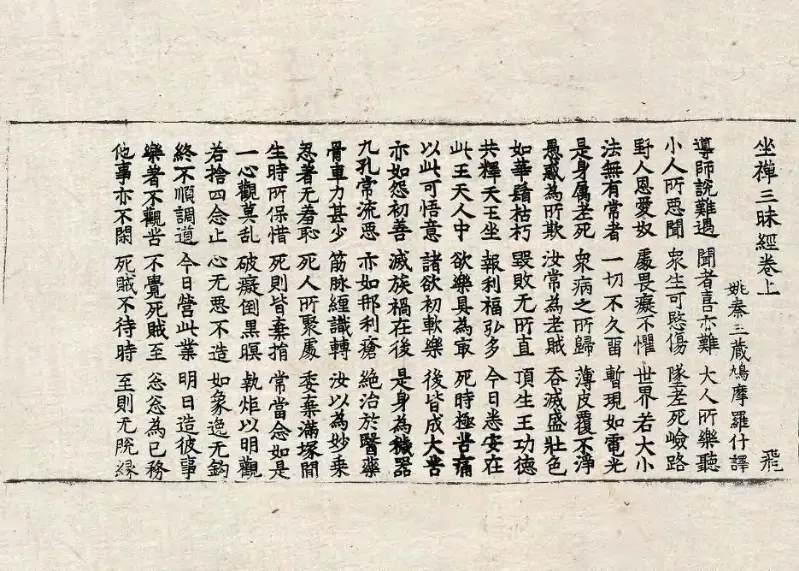 坐禪三昧經卷上 飛
姚秦三藏鳩摩羅什譯
導師說難遇 聞者喜亦難 大人所樂聽
小人所惡聞 衆生可愍傷 墜老死嶮路
野人恩愛奴 處畏癡不懼 世界若大小
法無有常者 一切不久留 暫現如電光
是身屬老死 衆病之所歸 薄皮覆不淨
愚惑為所欺 汝常為老賊 吞滅盛壯色
如華鬘枯朽 毀敗無所直 頂生王功德
共釋天王坐 報利福弘多 今日悉安在
此王天人中 欲樂具為冣 死時極苦痛
以此可悟意 諸欲初軟樂 後皆成大苦
亦如怨初善 滅族禍在後 是身為穢器
九孔常流惡 亦如那利瘡 絶治於醫藥
骨車力甚少 筋脉纏識轉 汝以為妙乗
忍著无羞恥 死人所聚處 委棄滿塚間
生時所保惜 死則皆棄捐 常當念如是
一心觀莫乱 破癡倒黑暝 執炬以明觀
若捨四念止 心无惡不造 如象逸无鈎
終不順調道 今日營此業 明日造彼事
樂著不觀苦 不覺死賊至 忩忩為己務
他事亦不閑 死賊不待時 至則无脫緣